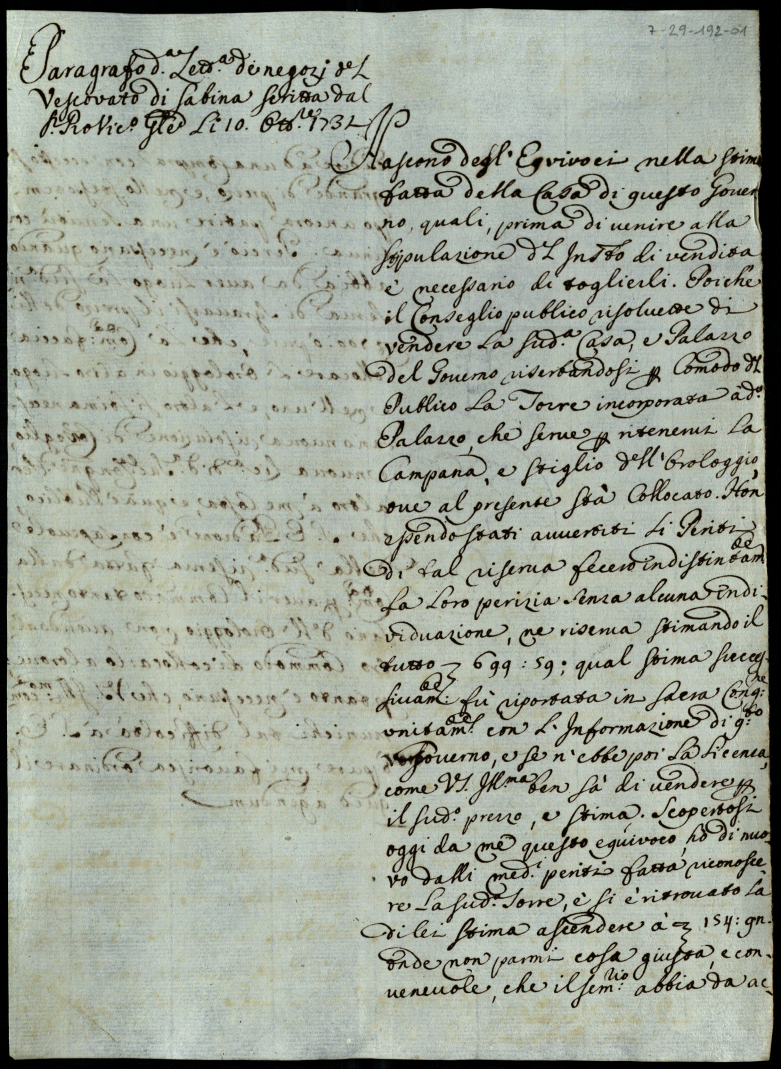 7-29-192-01
Paragrafo d.ª Lett.ª de negozj del
Vescovato di Sabina scritta dal
Li 10. Ott.re 1734
Nascono degl' Equivoci nella stima
fatta della Casa di questo Gover=
no, quali, prima di venire alla
stipulazione dl Insto di vendita
è necessario di toglierli. Poiche
il Conseglio publico risolvette di
vendere La sud.ª Casa, e Palazzo
del Governo riserbandosi p Comodo dl
Publico La Torre incorporata à d.º
Palazzo, che serve p ritenervi La
Campana, e stiglio dell' Orologgio,
ove al presente stà Collocato. Non
essendo stati avvertiti Li Periti
di tal riserva fecero indistintam.te
La Loro perizia senza alcuna indi-
viduazione, ne riserva stimando il
tutto 699 : 59 : qual stima succes-
sivam.te fù riportata in Sacra Cong.ne
unitam.te con L' Informazione di q.sto
Governo, e se n'ebbe poi La Licenza,
come VS Ill.ma ben sà di vendere p
il sud.º prezzo, e stima. Scopertosi
oggi da me questo equivoco, hò di nuo-
vo dalli med.i periti fatta riconosce-
re La sud.ª Torre, e si è ritrovato La
di lei stima ascendere à 154 :
onde non parmi cosa giusta, e con-
venevole, che il sem.rio abbia da ac-